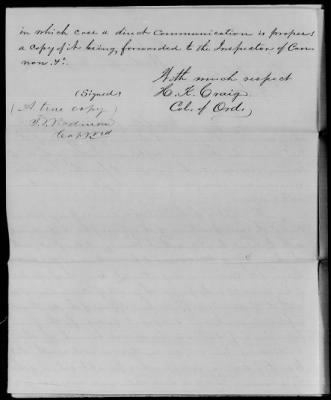 in which case a direct communication is proper:
a copy of it being, forwarded to the Inspector of Can-
non &c.
With much respect
(Signed) H. K. Craig
Col. of Ord.
(A true copy)
T. J. Rodman
Capt